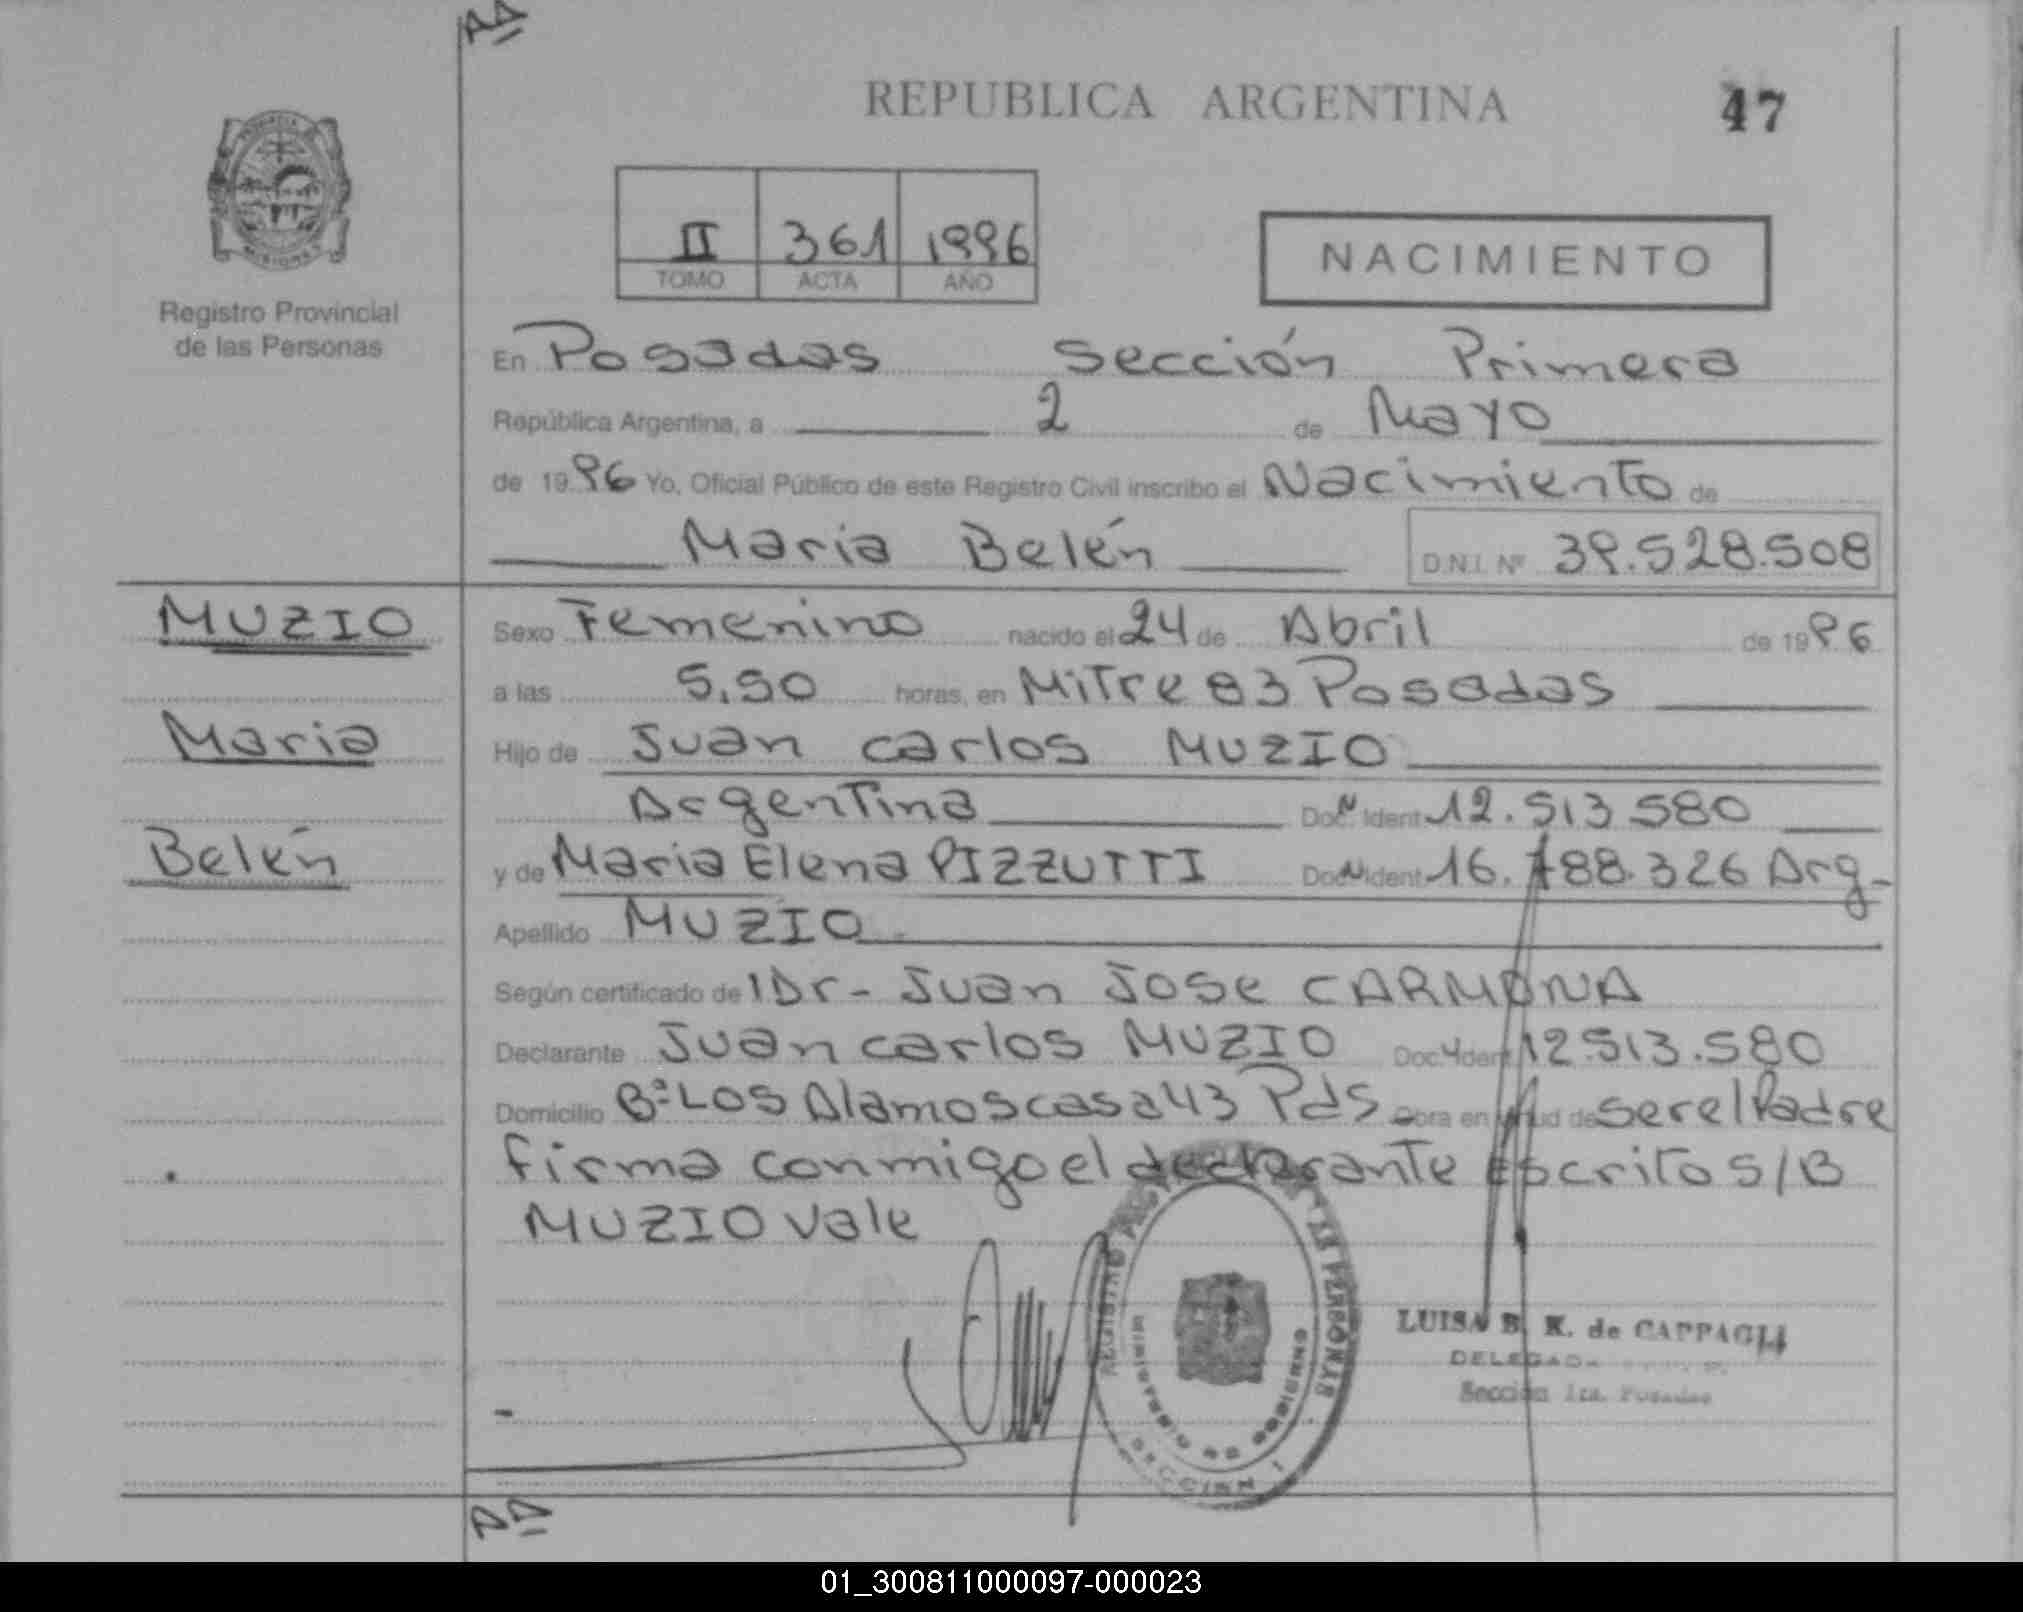 AA
REPUBLICA ARGENTINA
47
PROVINCIA DE MISIONES
Registro Provincial
de las Personas
II 361 1996
TOMO ACTA AÑO
NACIMIENTO
En Posadas Sección Primera
República Argentina, a 2 de Mayo
de 1996 Yo, Oficial Público de este Registro Civil inscribo el Nacimiento de
Maria Belén D.N.I. Nº 39.528.508
MUZIO
Maria
Belén
Sexo Femenino nacido el 24 de Abril de 1996
a las 5.50 horas, en Mitre 83 Posadas
Hijo de Juan Carlos MUZIO
Argentina Doc. Ident. 12.513.580
y de Maria Elena PIZZUTTI Doc. Ident. 16. 88.326 Arg-
Apellido MUZIO
Según certificado de l Dr- Juan Jose CARMONA
Declarante Juan Carlos MUZIO Doc. Ident. 12.513.580
Domicilio Bº Los Alamos casa 43 Pds Obra en virtud de ser el Padre
firma conmigo el declarante Escrito S/B
MUZIO Vale
REGISTRO PROVINCIAL DE LAS PERSONAS
MINISTERIO DE GOBIERNO
LUISA B. K. de CAPPAGLI
DELEGADA
Sección 1ra. Posadas
AA
01_300811000097-000023